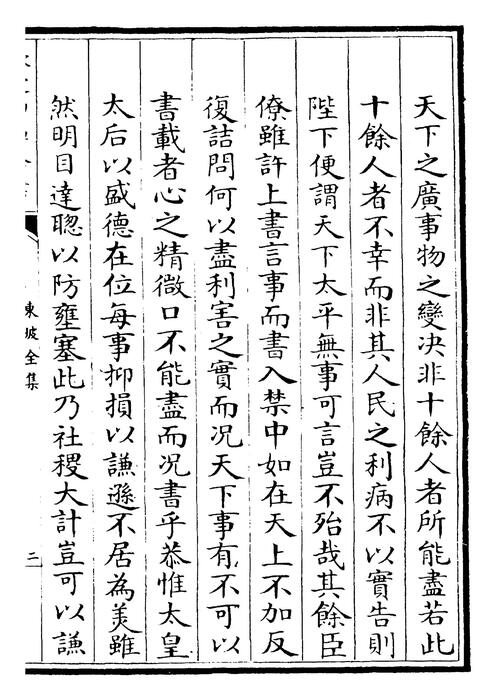 天下之廣事物之變決非十餘人者所能盡若此
十餘人者不幸而非其人民之利病不以實告則
陛下便謂天下太平無事可言豈不殆哉其餘臣
僚雖許上書言事而書入禁中如在天上不加反
復詰問何以盡利害之實而况天下事有不可以
書載者心之精微口不能盡而况書乎恭惟太皇
太后以盛德在位每事抑損以謙遜不居為美雖
然明目達聰以防壅塞此乃社稷大計豈可以謙
東坡全集
三